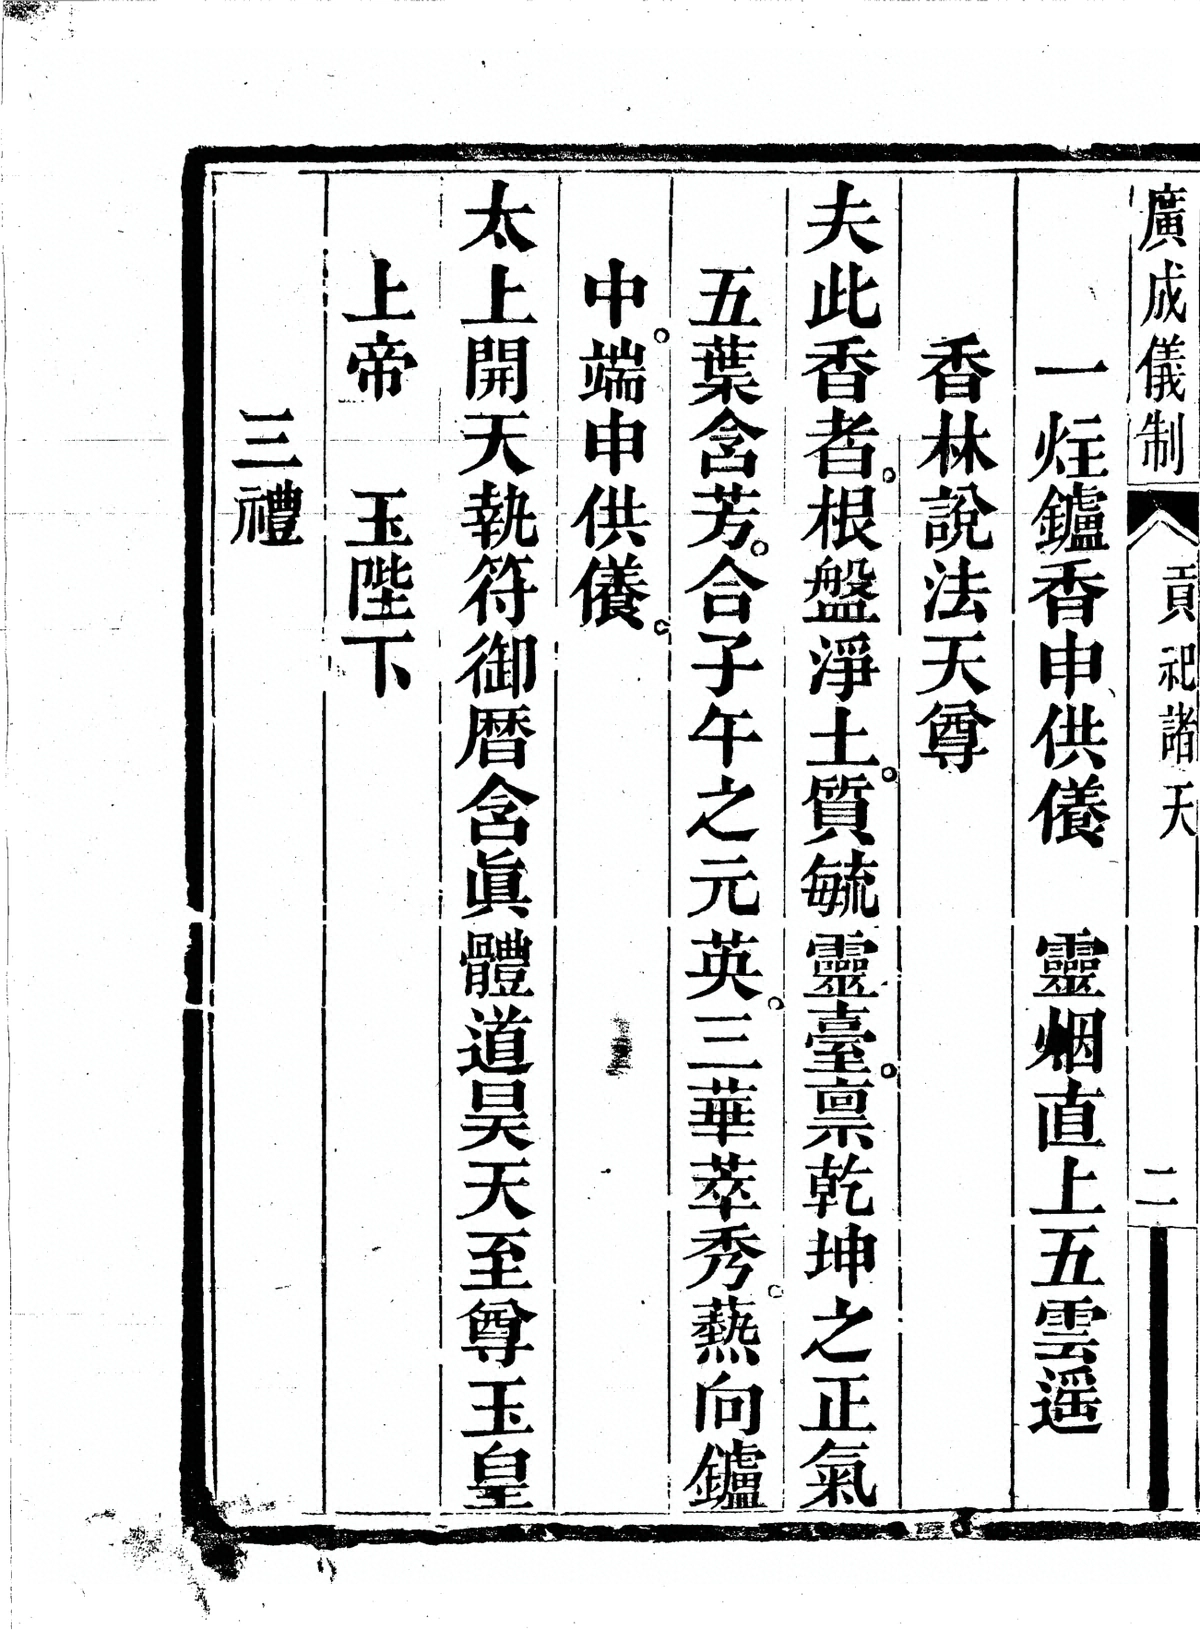 廣成儀制 貢祀諸天 二
一炷鑪香申供養 靈烟直上五雲遥
香林說法天尊
夫此香者。根盤淨土。質毓靈臺。禀乾坤之正氣
五葉含芳。合子午之元英。三華萃秀。爇向鑪
中。端申供養。
太上開天執符御曆含眞體道昊天至尊玉皇
上帝 玉陛下
三禮